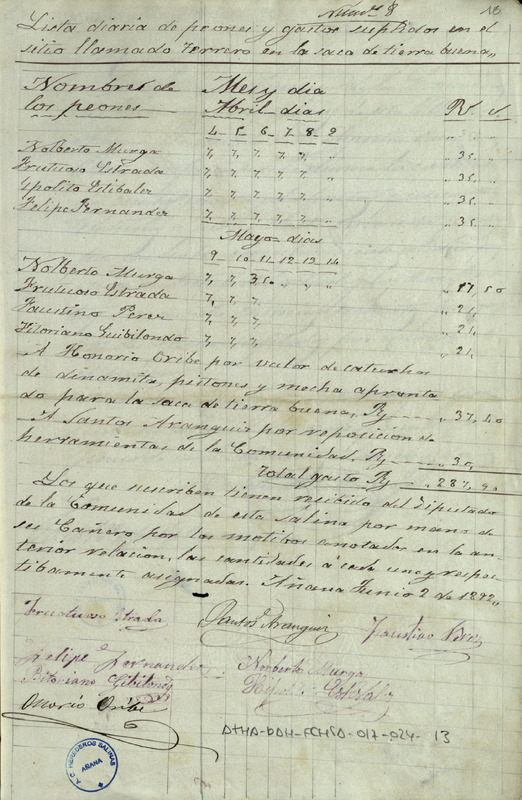 Númº 8
18
Lista diaria de peones y gastos suplidos en el
sitio llamado Terrero en la saca de tierra buena,,
Nombres de Mes y dia
los peones Abril dias Rs. c.
4 5 6 7 8 9
Nolberto Murga 7, 7, 7, 7, 7, " " 35, "
Frutuoso Estrada 7, 7, 7, 7, 7, " " 35, "
Ypolito Estibalez 7, 7, 7, 7, 7, " " 35, "
Felipe Fernandez 7, 7, 7, 7, 7, " " 35, "
Mayo dias
9 10 11 12 13 14
Nolberto Murga 7, 7, 3,50 " " " " 17,50
Frutuoso Estrada 7, 7, 7, " 21,
Faustino Perez 7, 7, 7, " 21,
Vitoriano Guibilondo 7, 7, 7, " 21,
A Honorio Oribe por valor de
de dinamita, pistones y mecha apronta
do para la saca de tierra buena, Rs " 37,40
A Santos Aranguiz por reposicion de
herramientas de la Comunidad, Rs " 30,
Total gasto Rs " 287,90
Los que suscriben tienen recibido del Diputado
de la Comunidad de esta salina por mano de
su Cañero por los motivos anotados en la an-
terior relacion, las cantidades a cada uno y respec-
tibamente asignadas. Añana Junio 2 de 1892,,
Fructuoso Estrada Santos Aranguiz Faustino Perez
Felipe Fernandez Norberto Murga
Bitoriano Gibilondo
Onorio Oribe
ATHA-DAH-FCHSA-017-024-13
A.C. HEREDEROS SALINAS
AÑANA